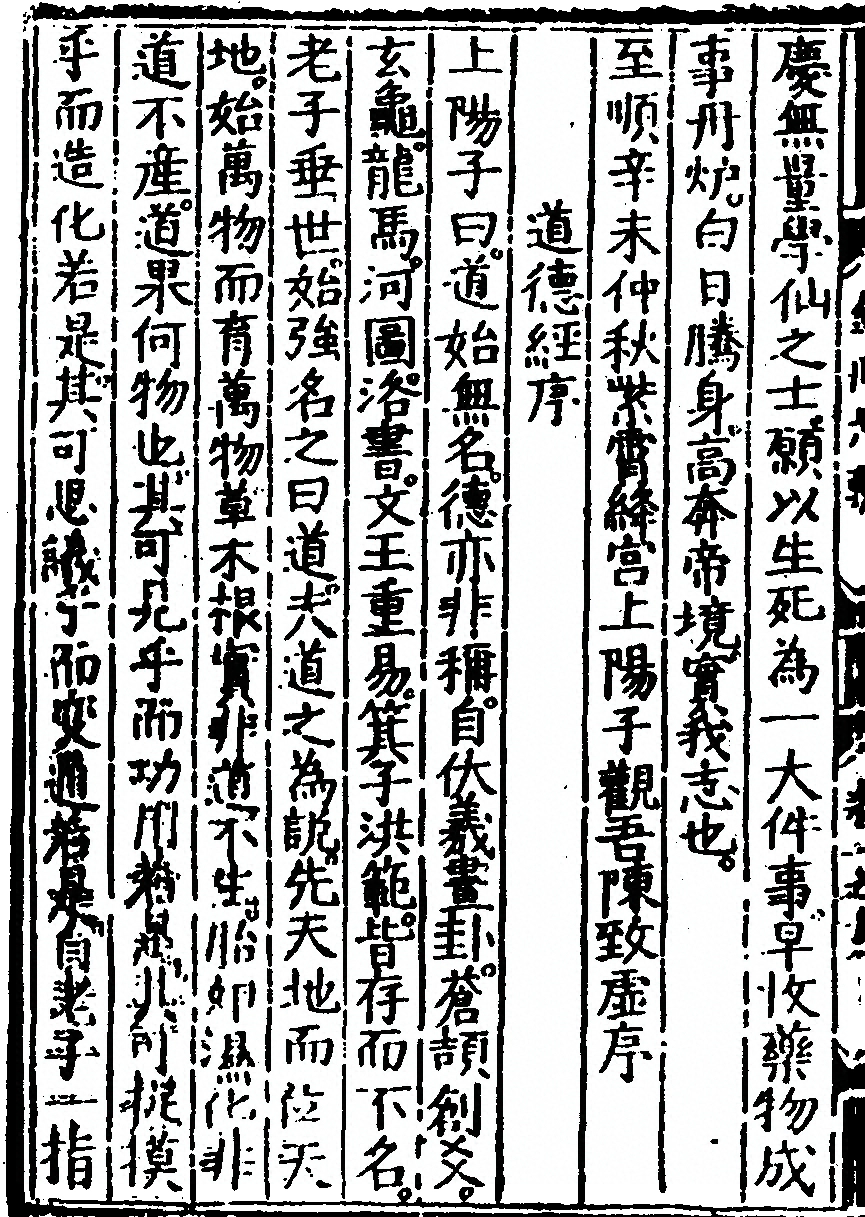 慶無量學仙之士願以生死為一大件事早收藥物成
事丹炉白日騰身高奔帝境實我志也
至順辛未仲秋紫霄絳宮上陽子觀吾陳致虛序
道德經序
上陽子曰道始無名德亦非稱自伏羲畫卦蒼頡創爻
玄龜龍馬河圖洛書文王重易箕子洪範皆存而不名
老子垂世始強名之曰道夫道之為說先天地而位天
地始萬物而育萬物草木根實非道不生胎卵濕化非
道不產道果何物也其可見乎而功用若是其可挺摸
乎而造化若是其可思議乎而變通若是自老子一指